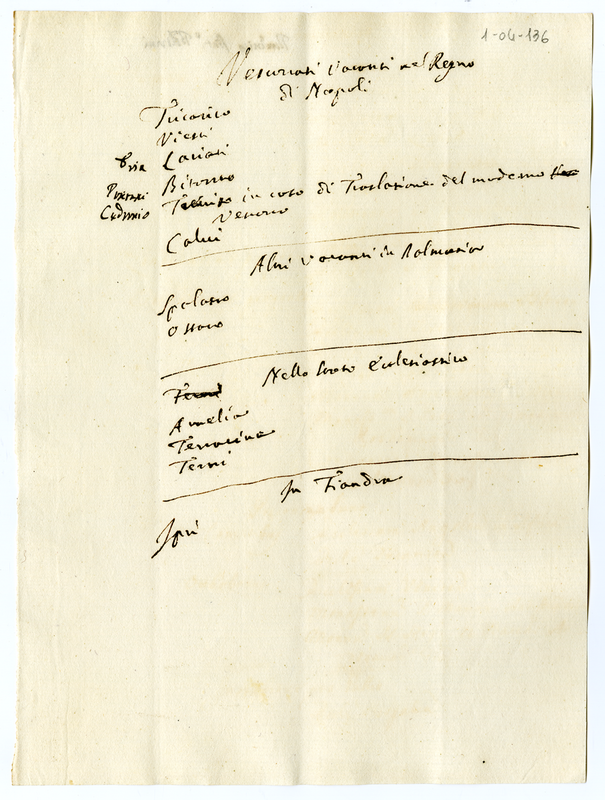 1-04-136
Vescovati vacanti nel Regno
di Napoli
Tricarico
Viesti
Oria Lariati
Bitonto
in caso di Traslazione del moderno
Vescovo
Calvi
Altri vacanti in Dalmazia
Spalatro
Ossaro
Nello Stato Ecclesiastico
Fermi
Amelia
Terracina
Terni
In Fiandra
Ipri